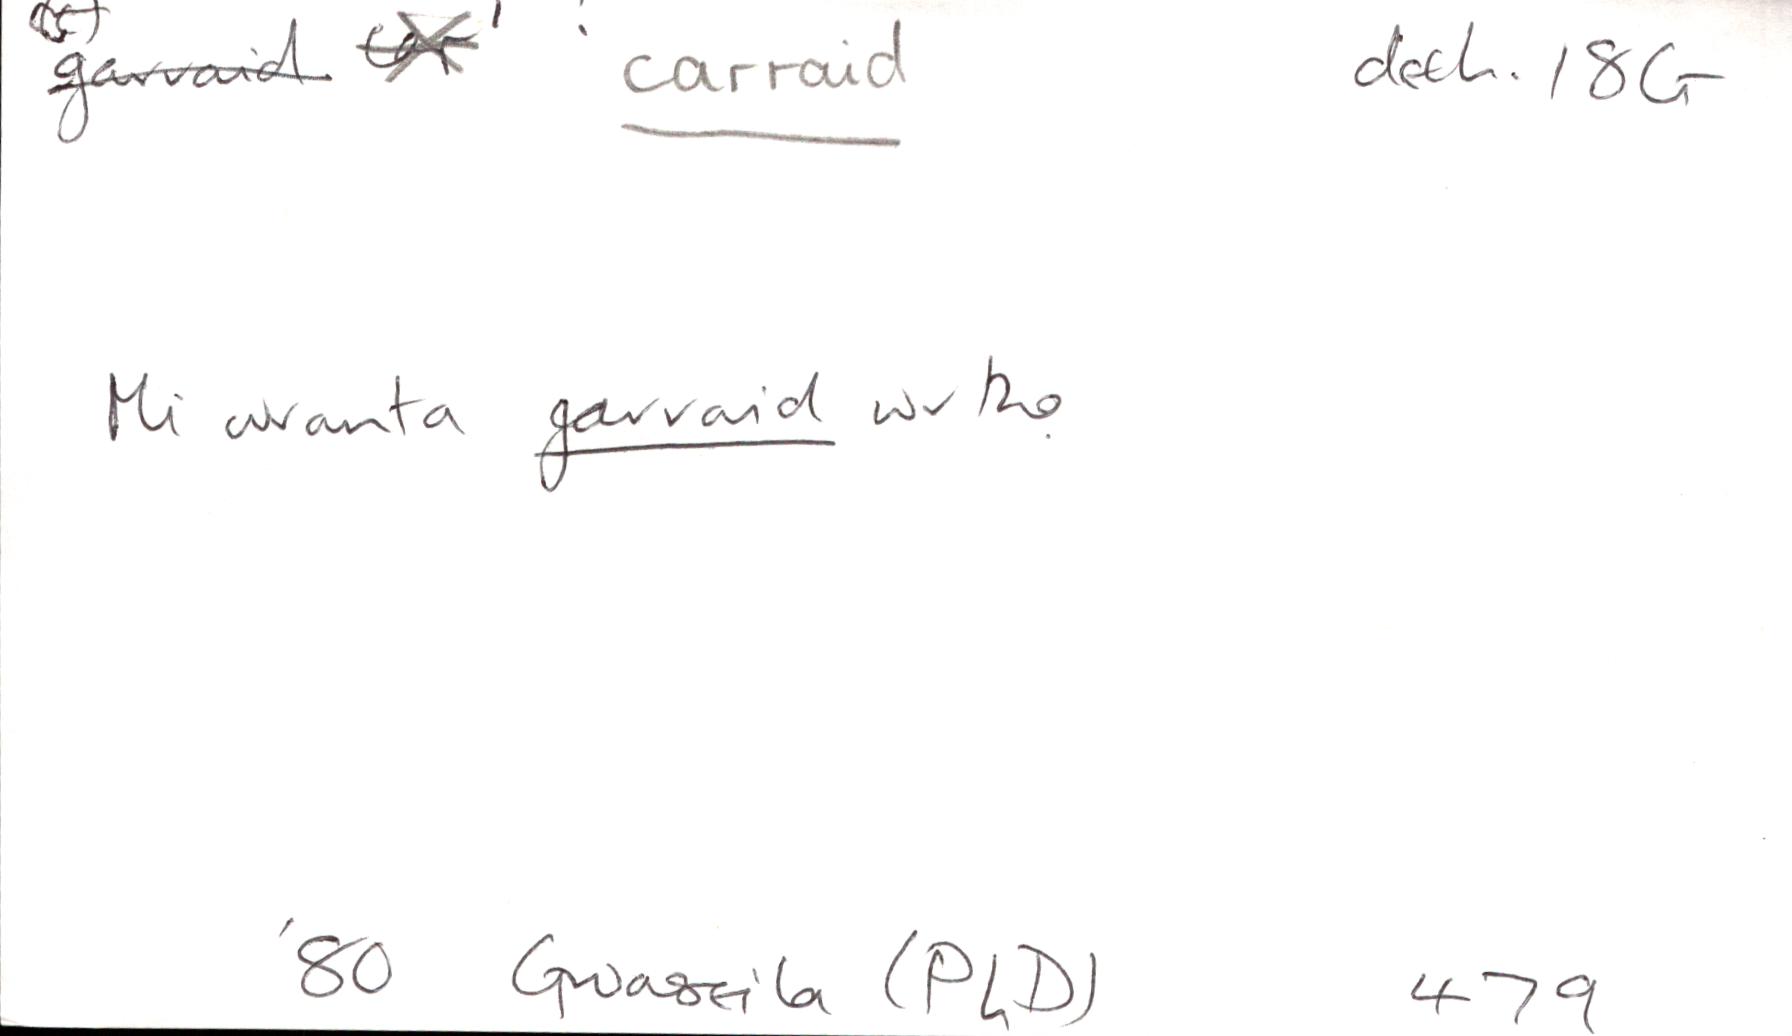 garraid carraid dech. 18G
Mi wranta garraid wrtho.
'80 Gwaseila (PhD) 479